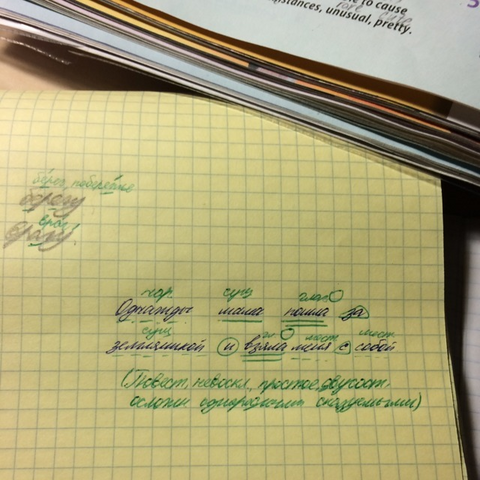 e to cause
stances, unusual, pretty.
берег, побережье
берегу
враг
врагу
нар. сущ глаг
Однажды мама пошла за
сущ гл мест. мест.
земляникой и взяла меня с собой
(Повест, невоскл, простое, двусост.
ослож однородными сказуемыми)